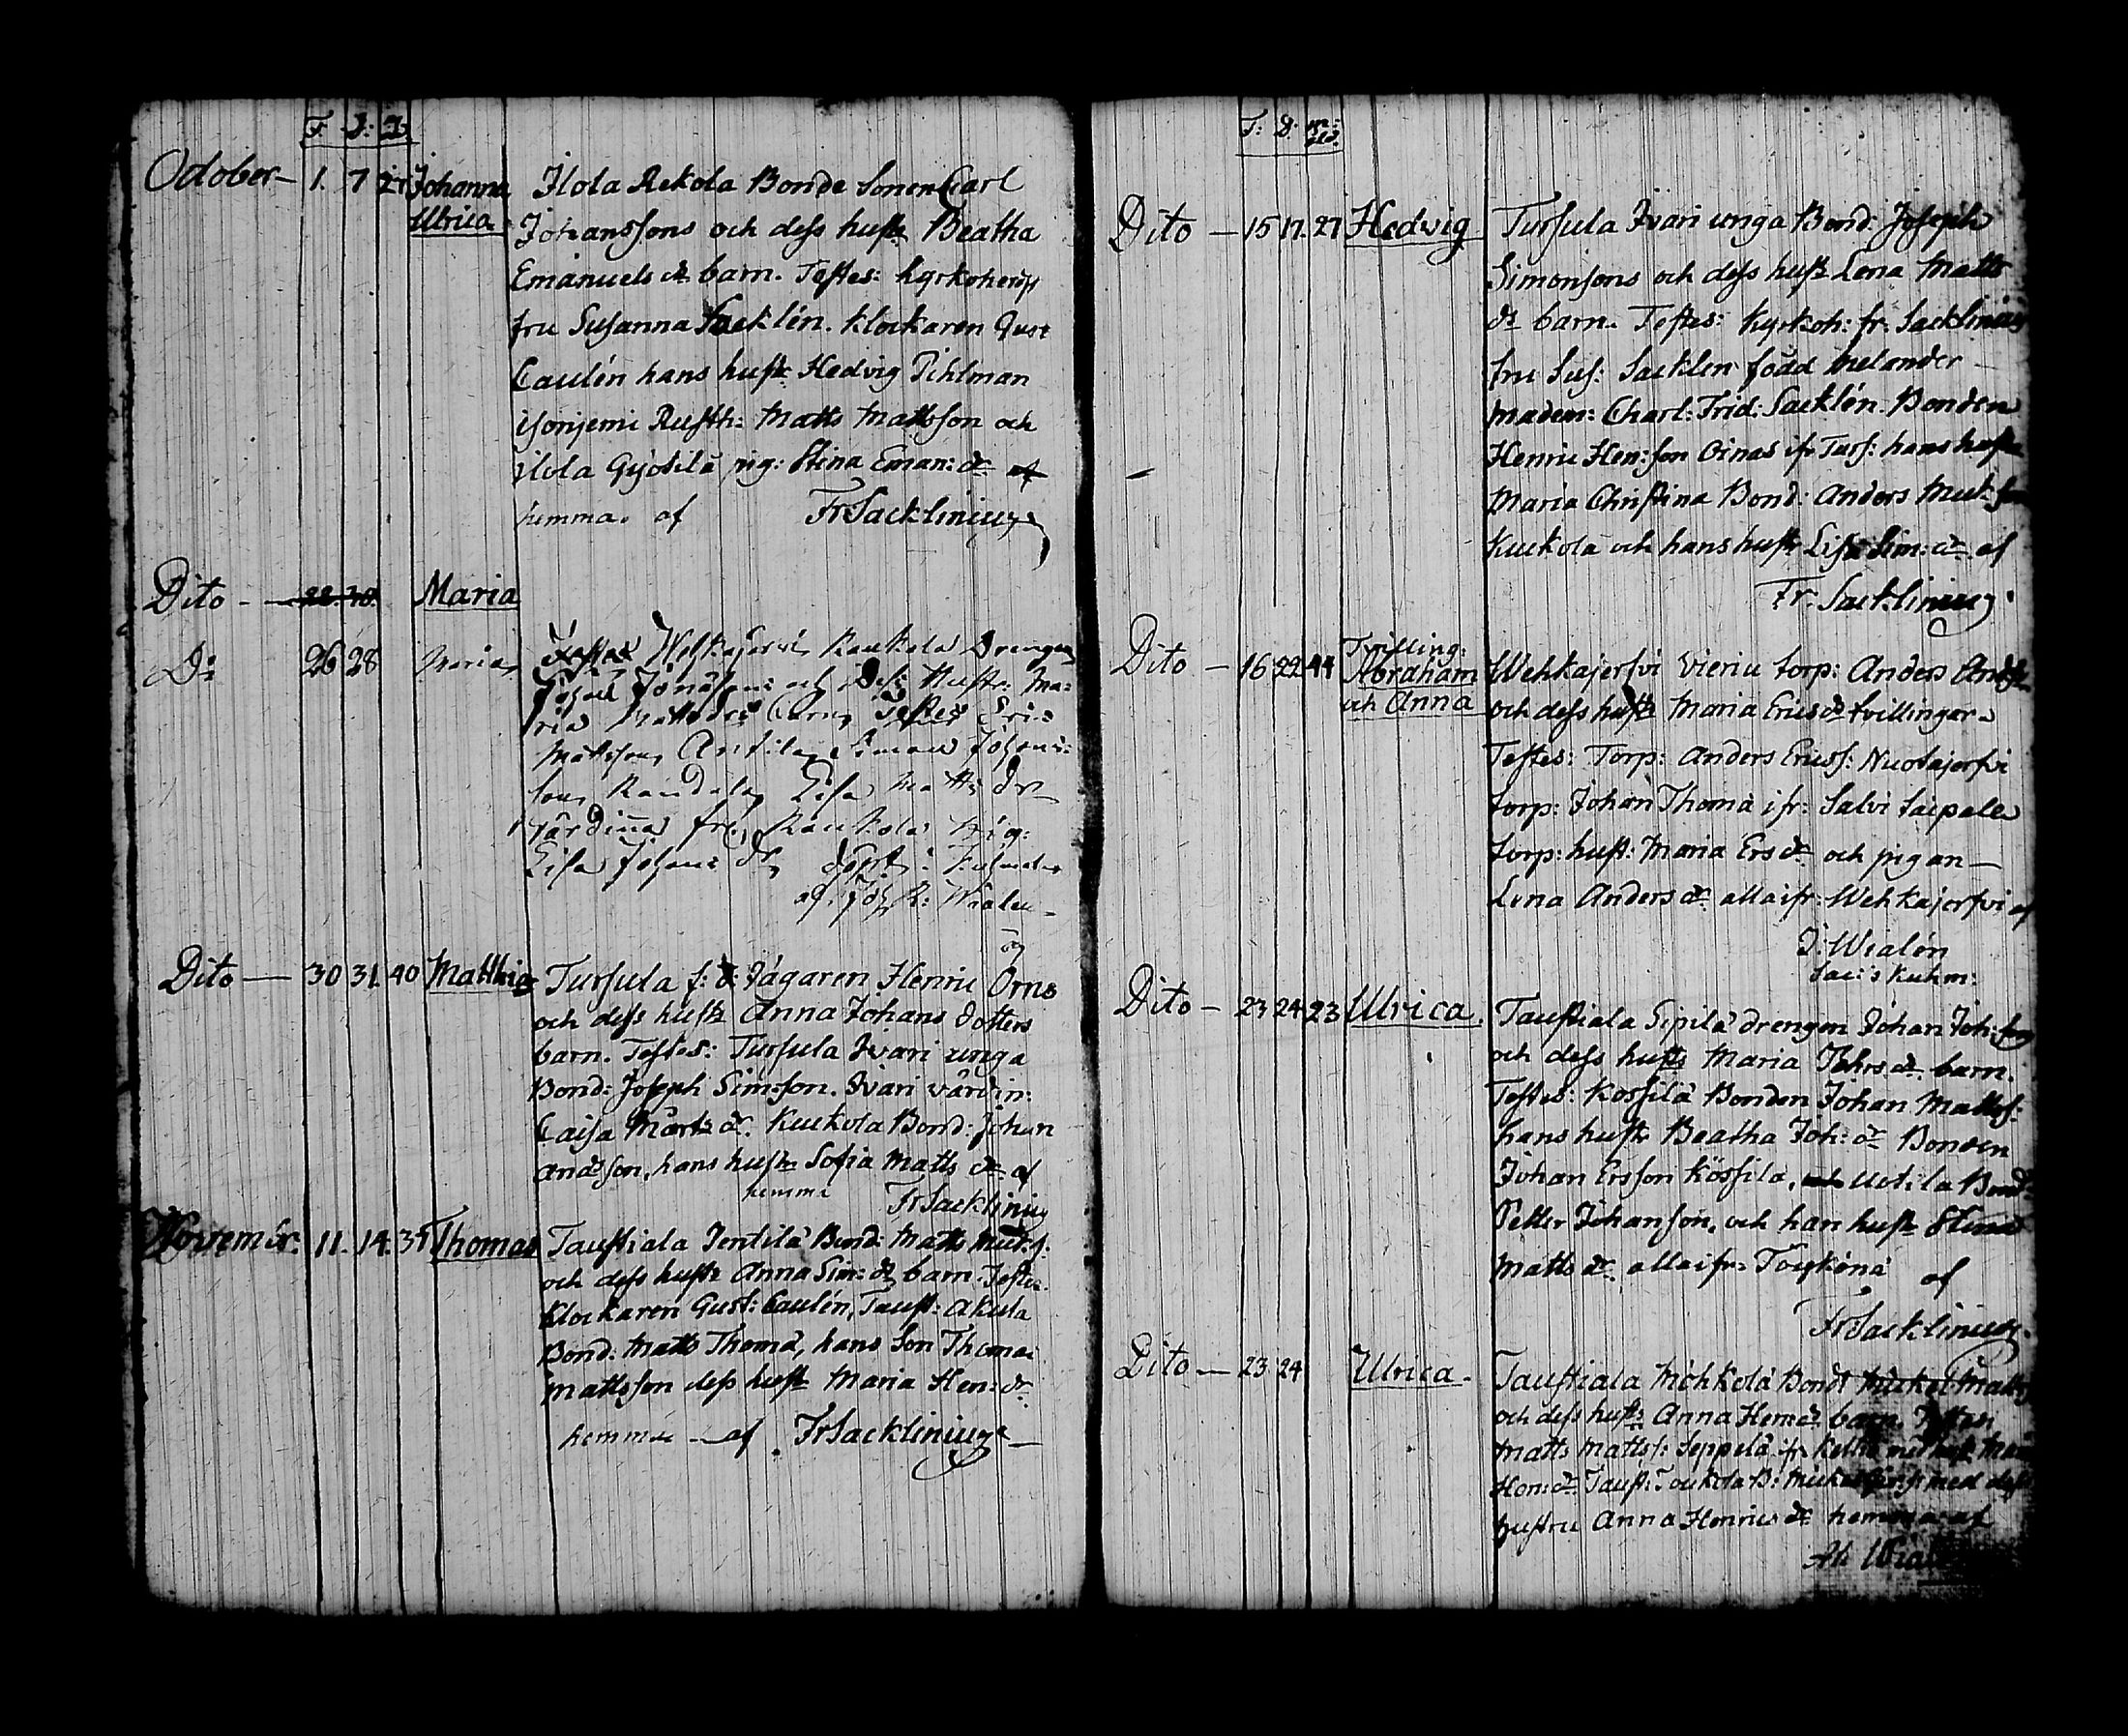 F. D: J:
October — 1. 7 27 Johanna Ilola Rekola Bonde Sonen Carl
Ulrica. Johanssons och dess hustr Beatha
Emanuels dr barn. Testes: kyrkoherdfr
fru Susanna Sacklén. Klockaren Gust
Caulén hans hustr Hedvig Pihlman
isonjemi Rusth: Matts Mattsson och
ilola Gyötilä pig: Stina Eman: dr
hemma. af Fr Sacklinius
Dito - 22. 30. Maria
Do 26 28 Maria Wehkajervi Raukola Drengen
Johan Jonässons och Dess Hustr: Ma-
ria Mattsdrs Barn Testes Eric
Mattsson Anttila Simon Johans-
son Raudala Lisa Matts dr
värdinna fr. Raukola pig:
Lisa Johans dr döpt i Kuhmalax
af Joh R: Wialen
Dito — 30 31. 40 Matthias Tursula f: d: Jägaren Henric Örns
och dess hustr Anna Johans dotters
barn. Testes: Tursula Ivari unga
Bond: Joseph Simsson. Ivari värdin:
Caisa Märts dr. Kuckola Bond: Johan
andsson, hans hustr Sofia Matts dr af
hemma Fr Sacklinius
Novembr. 11. 14. 35 Thomas Taustiala Pentilä Bond: Matts Matts:
och dess hustr Anna Sim: dr barn. Testes.
Klockaren Gust: Caulén, Taust: Akula
Bond: Matts Thoma, hans Son Thomas
Mattsson dess hustr Maria Hen: dr
hemma — af Fr Sacklinius
T: D. m: åld.
Dito — 15 17. 27 Hedvig Tursula Ivari unga Bond: Joseph
Simonsons och dess hustr Lena Matts
dr barn. Testes: Kyrkoh: fr: Sacklinius
fru Sus: Sacklen född Melander
Madem: Charl: Frid: Sacklén. Bonden
Henric Hen: son Oinas ifr Turs: hans hustr
Maria Christina Bond: Anders
Kuckola och hans hustr Lisa Sim: dr. af
Fr. Sacklinius
Dito — 16 22 44 Tvilling: Abraham Wehkajerfvi Vieriu torp: Anders Anders
och Anna och dess hustr Maria Erics dr tvillingar.
Testes: Torp: Anders Ericss: Nuotajerfvi
torp: Johan Thoma ifr: Salvi Saipala
torp: hust: Maria Ers dr och pigan —
Lena Anders dr alla ifr: Wehkajerfvi af
J: Wialén
Sac: i Kuhm:
Dito — 23 24 23 Ulrica. Taustiala Sipilä drengen Johan Joh: son
och dess hustr Maria dr. barn.
Testes: Kossilä Bonden Johan Mattss:
hans hustr Beatha Joh: dr Bonden
Johan Ersson Kössila, Uotila Bond:
Petter Johanson, och han hustr Stina
Matts dr. alla ifr: Torjkönä af
Fr Sacklinius.
Dito — 23 24 Ulrica. Taustiala Möhkölä Bond: Mickel Matts
och dess hustr Anna Hen: dr barn. Testes
Matts Mattss: Seppelä ifr
Hen: dr Taust: Toukola B: Mickel med dess
hustru Anna Henrics dr hemma af